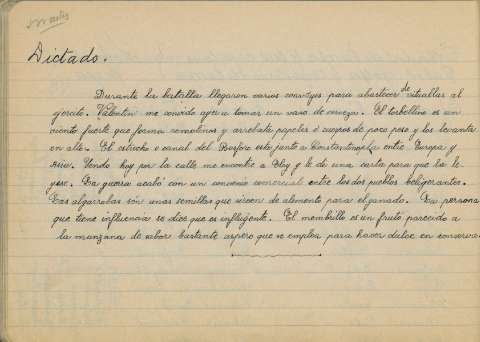 Martes
Dictado.
Durante la batalla llegaron varios convoyes para abastecer de vituallas al
ejercito. Valentin me convidó ayer a tomar un vaso de cerveza. El torbellino es un
viento fuerte que forma remolinos y arrebata papeles ó cuerpos de poco peso y los levanta
en alto. El estrecho o canal del Bosforo esta junto a Constantinopla entre Europa y
Asia. Yendo hoy por la calle me encontré a Eloy y le di una carta para que la le
yese. La guerra acabó con un convenio comercial entre los dos pueblos beligerantes.
Las algarrobas son unas semillas que sirven de alimento para el ganado. La persona
que tiene influencia se dice que es influyente. El membrillo es un fruto parecido a
la manzana de sabor bastante aspero que se emplea para hacer dulce en conserva.